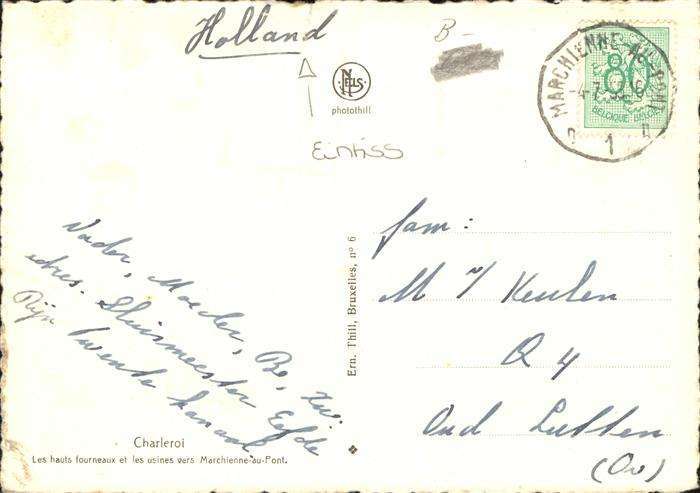 Holland
B-
NELS
photothill
Eintiss
MARCHIENNE-AU-PONT
-4-7- 16
1
80
BELGIQUE BELGIE
fam:
M v/ Keulen
Q 4
Oud Lutten
(Ov)
Vader, Moeder, Be,
adres. Sluismeester Eefde
Rijn Twente kanaal
Ern. Thill, Bruxelles, nº 6
Charleroi
Les hauts fourneaux et les usines vers Marchienne-au-Pont.